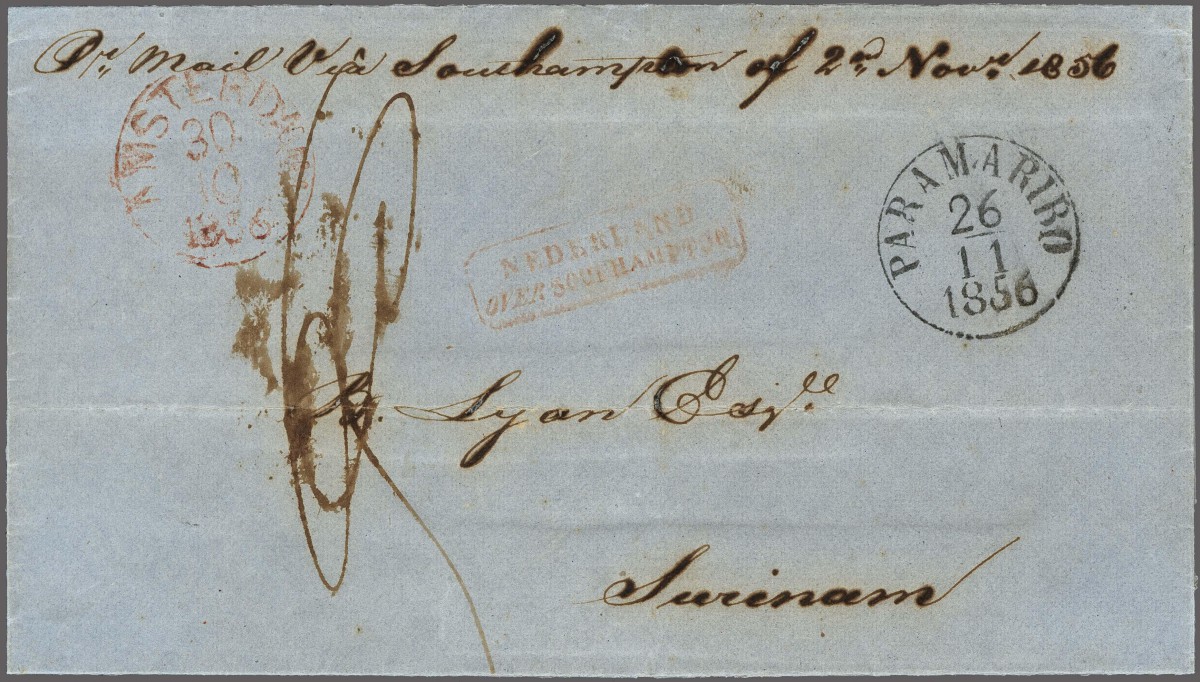 Pr. Mail Via Southampton of 2nd Novr. 1856
AMSTERDAM
30
10
1856
NEDERLAND
OVER SOUTHAMPTON.
PARAMARIBO
26
11
1856
Lyon Esqre
Surinam